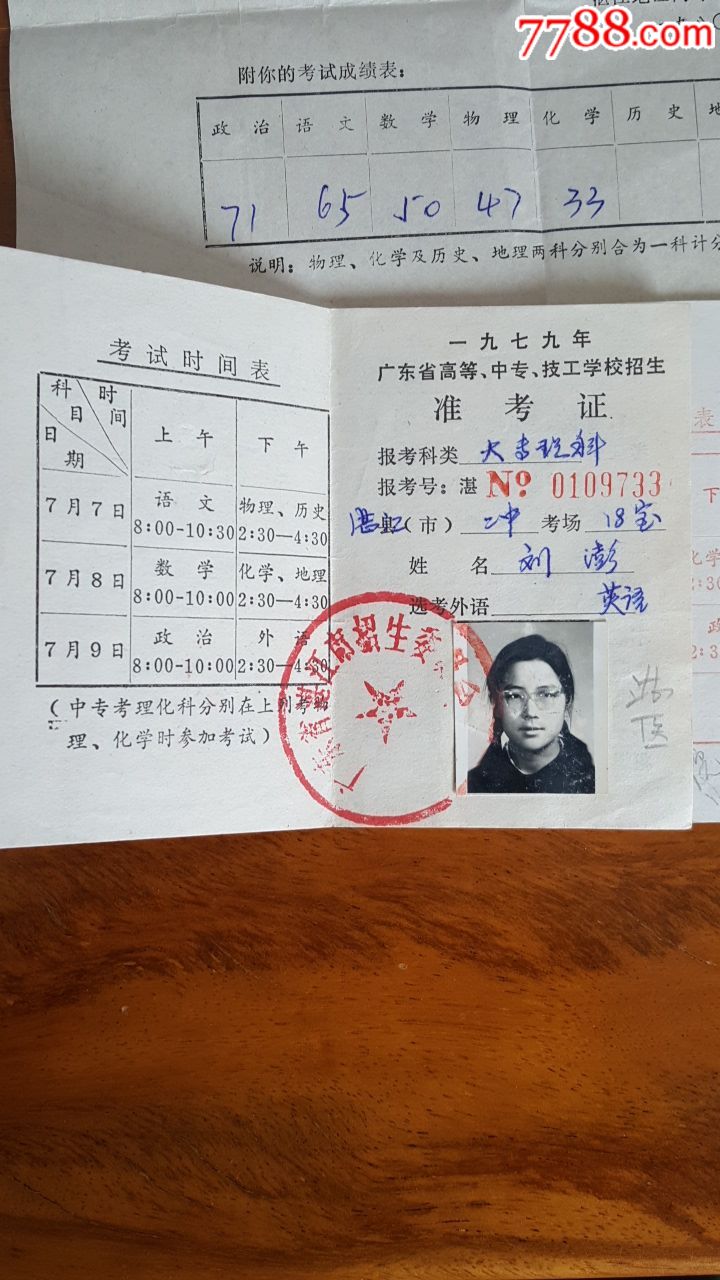 7788.com
附你的考试成绩表:
政治 语文 数学 物理 化学 历史
71 65 50 47 33
说明:物理、化学及历史、地理两科分别合为一科计分
考试时间表
科目 时间 日期
上午 下午
7月7日 语文 8:00-10:30 物理、历史 2:30—4:30
7月8日 数学 8:00-10:00 化学、地理 2:30—4:30
7月9日 政治 8:00-10:00 外语 2:30—4:30
(中专考理化科分别在上列考物
理、化学时参加考试)
一九七九年
广东省高等、中专、技工学校招生
准考证
报考科类 大专理科
报考号:湛 No 0109733
湛江(市) 二中 考场 18室
姓名 刘澎
选考外语 英语
招生委